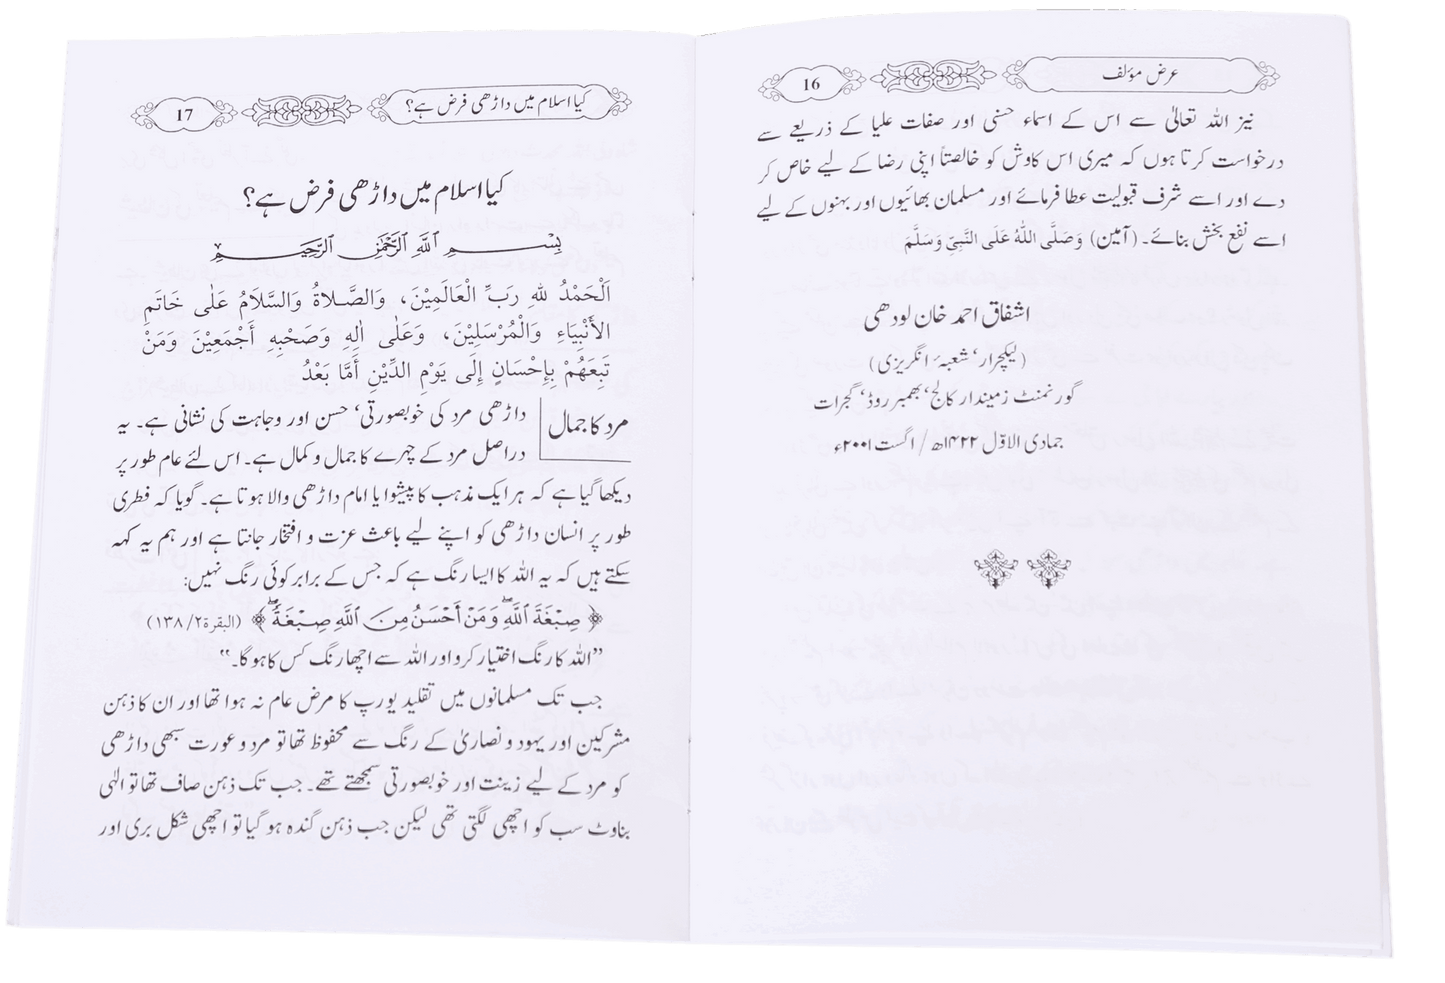 عرض مؤلف
16
نیز اللہ تعالیٰ سے اس کے اسماء حسنی اور صفات علیا کے ذریعے سے
درخواست کرتا ہوں کہ میری اس کاوش کو خالصتاً اپنی رضا کے لیے خاص کر
دے اور اسے شرف قبولیت عطا فرمائے اور مسلمان بھائیوں اور بہنوں کے لیے
اسے نفع بخش بنائے۔ (آمین) وَصَلَّی اللّٰہُ عَلَی النَّبِیِّ وَسَلَّمَ
اشفاق احمد خان لودھی
(لیکچرار‘ شعبہء انگریزی)
گورنمنٹ زمیندار کالج‘ بھمبر روڈ‘ گجرات
جمادی الاوّل ۱۴۲۲ھ / اگست ۲۰۰۱ء
کیا اسلام میں داڑھی فرض ہے؟
17
کیا اسلام میں داڑھی فرض ہے؟
بِسْمِ ٱللَّهِ ٱلرَّحْمَٰنِ ٱلرَّحِيمِ
اَلْحَمْدُ لِلّٰہِ رَبِّ الْعَالَمِیْنَ، وَالصَّلاۃُ وَالسَّلَامُ عَلٰی خَاتَمِ
الأَنْبِیَاءِ وَالْمُرْسَلِیْنَ، وَعَلٰی اٰلِہٖ وَصَحْبِہٖ أَجْمَعِیْنَ وَمَنْ
تَبِعَهُمْ بِإِحْسَانٍ إِلَی یَوْمِ الدِّیْنِ أَمَّا بَعْدُ
مرد کا جمال
داڑھی مرد کی خوبصورتی‘ حسن اور وجاہت کی نشانی ہے۔ یہ
دراصل مرد کے چہرے کا جمال و کمال ہے۔ اس لئے عام طور پر
دیکھا گیا ہے کہ ہر ایک مذہب کا پیشوا یا امام داڑھی والا ہوتا ہے۔ گویا کہ فطری
طور پر انسان داڑھی کو اپنے لیے باعث عزت و افتخار جانتا ہے اور ہم یہ کہہ
سکتے ہیں کہ یہ اللہ کا ایسا رنگ ہے کہ جس کے برابر کوئی رنگ نہیں:
﴿ صِبْغَةَ ٱللَّهِ ۖ وَمَنْ أَحْسَنُ مِنَ ٱللَّهِ صِبْغَةً ۖ ﴾ (البقرة ۲/ ۱۳۸)
”اللہ کا رنگ اختیار کرو اور اللہ سے اچھا رنگ کس کا ہوگا۔“
جب تک مسلمانوں میں تقلید یورپ کا مرض عام نہ ہوا تھا اور ان کا ذہن
مشرکین اور یہود و نصاریٰ کے رنگ سے محفوظ تھا تو مرد و عورت سبھی داڑھی
کو مرد کے لیے زینت اور خوبصورتی سمجھتے تھے۔ جب تک ذہن صاف تھا تو الٰہی
بناوٹ سب کو اچھی لگتی تھی لیکن جب ذہن گندہ ہو گیا تو اچھی شکل بری اور